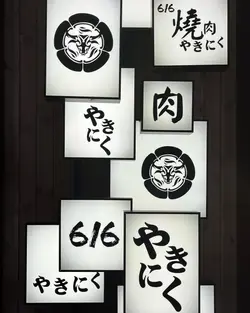 6/6
燒肉
やきにく
やき
にく
肉
6/6
やきにく
やき
にく